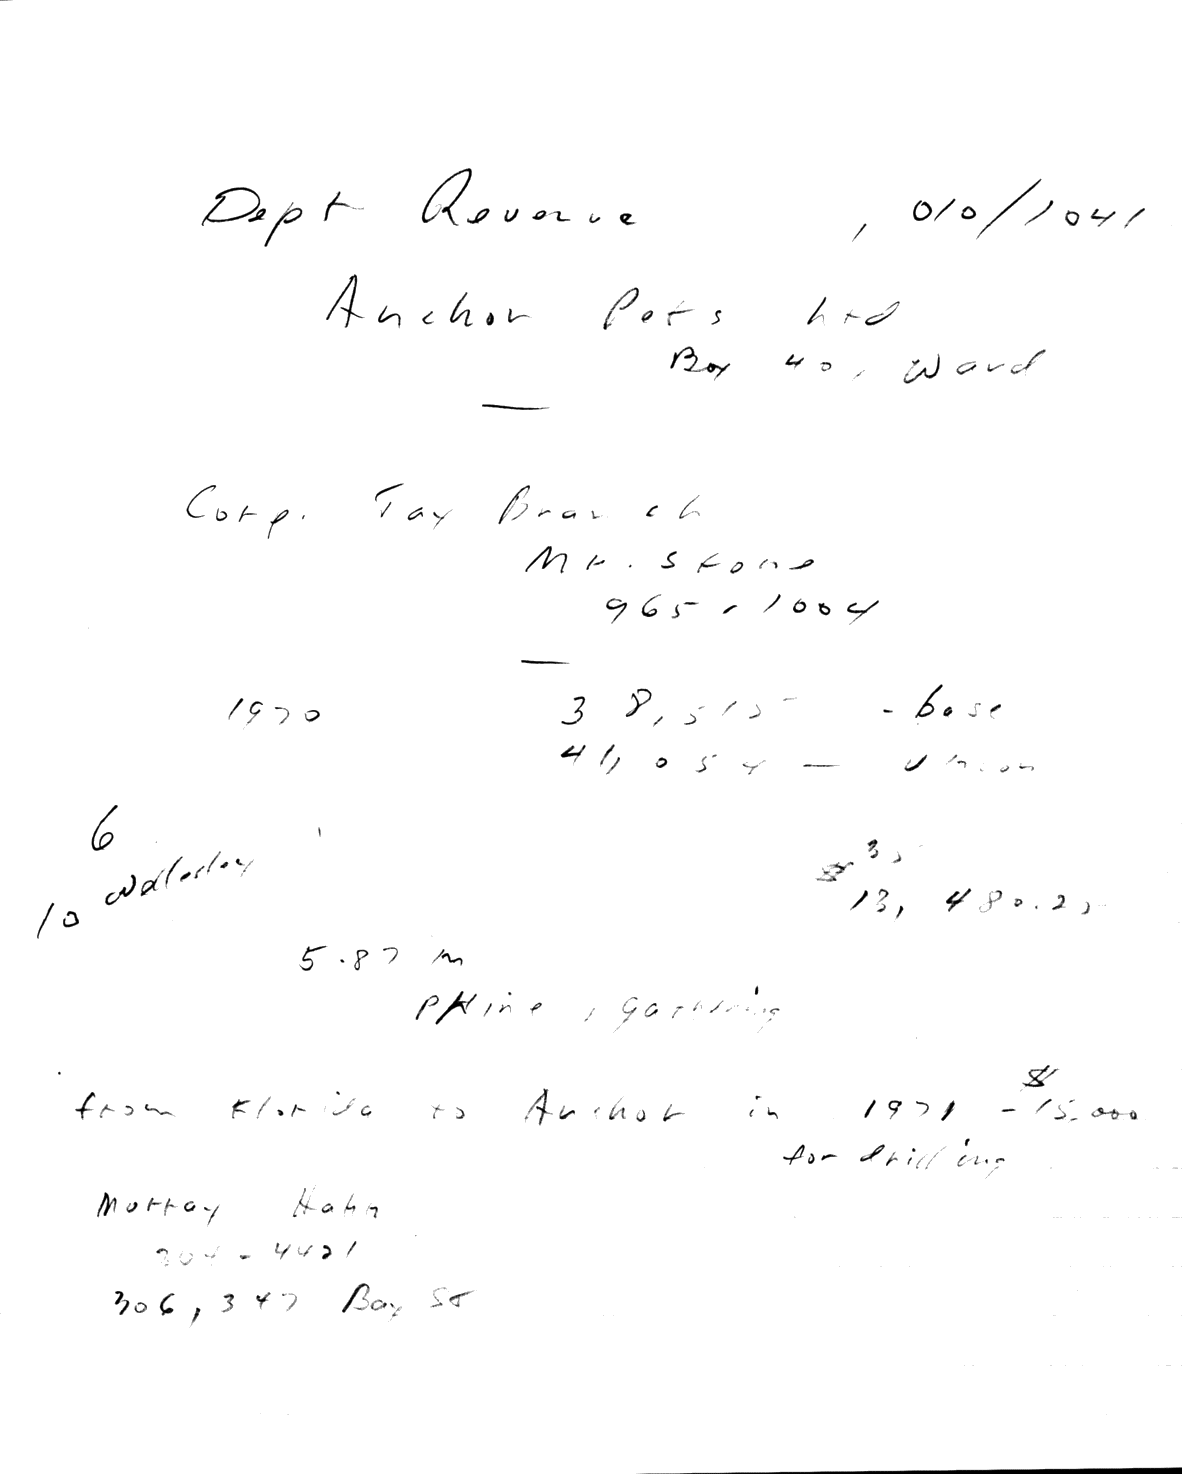 Dept Revenue , 010/1041
Anchor Pets Ltd
Box 40, Ward
Corp. Tax Branch
Mr. Stone
965-1004
1970 38,515 - base
41,054 — Union
6
Wellesley
10
$ 35
13, 480.25
5.87 m
Pline, gathering
from Florida to Anchor in 1971 - $15,000
for drilling
Murray Hahn
364-4421
306, 347 Bay St